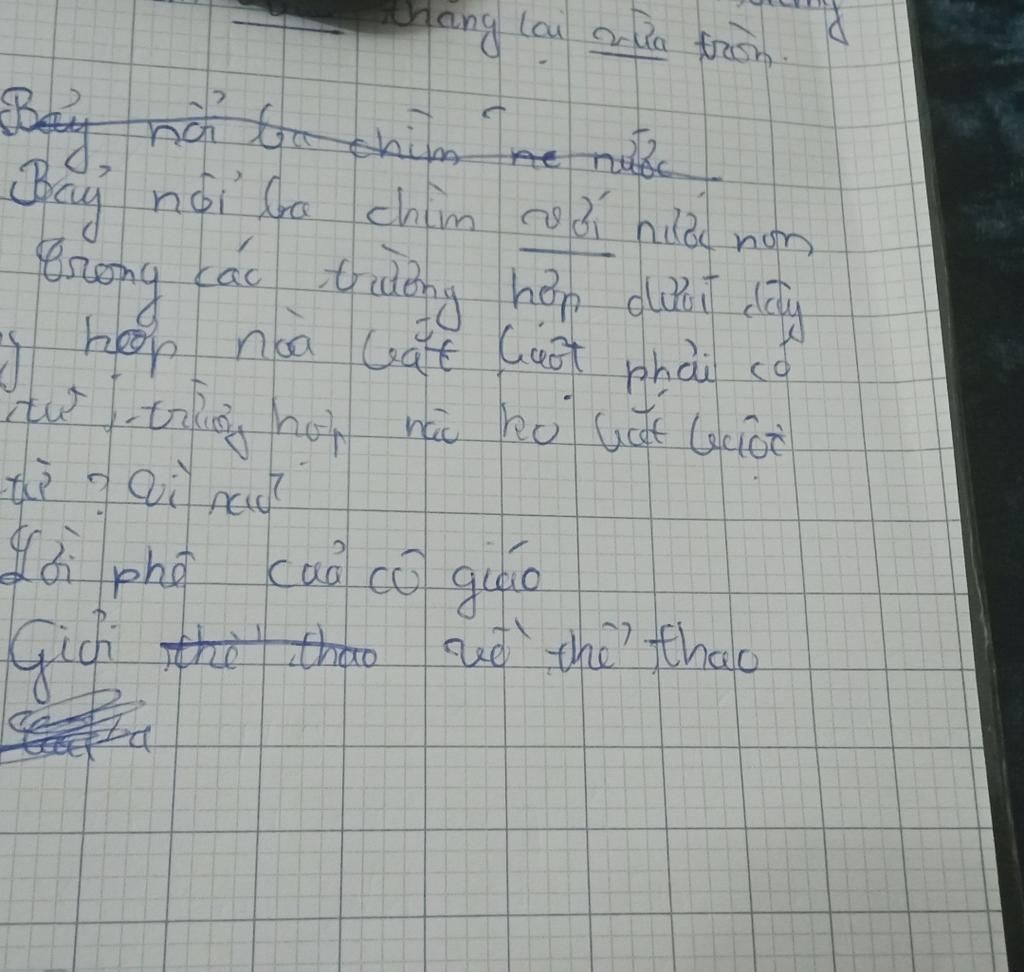 thắng lại vừa tròn.
Bảy nổi ba chìm nước
Bảy nổi ba chìm với nước non
Trong các trường hợp dưới đây
hợp nào bắt buột phải có
từ, trường hợp nào ko bắt buột
từ ? Vì sao?
Lời phê của cô giáo
Giỏi thể thao về thể thao